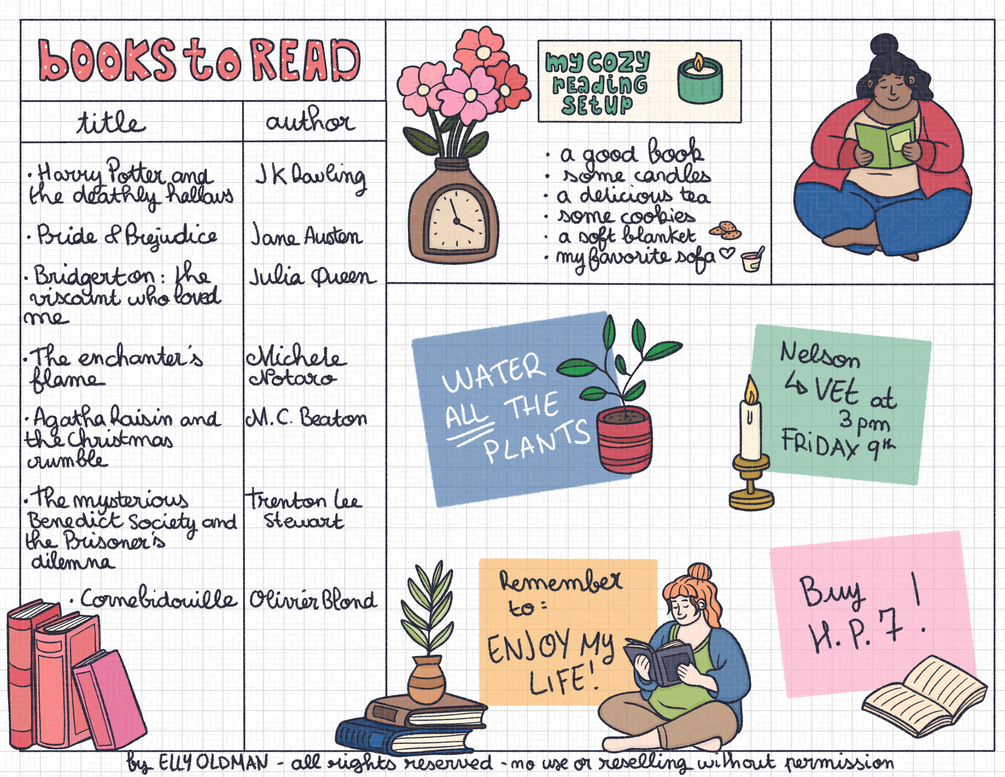 BOOKS to READ
title
author
· Harry Potter and
the deathly hallows
J K Rowling
· Pride & Prejudice
Jane Austen
· Bridgerton : the
viscount who loved
me
Julia Queen
· The enchanter's
flame
Michele
Notaro
· Agatha Raisin and
the Christmas
crumble
M.C. Beaton
· The mysterious
Benedict Society and
the Prisoner's
dilemna
Trenton Lee
Stewart
· Cornebidouille
Olivier Blond
my COZY
reading
SETUP
· a good book
· some candles
· a delicious tea
· some cookies
· a soft blanket
· my favorite sofa ♡
WATER
ALL THE
PLANTS
Nelson
↳ VET at
3 pm
FRIDAY 9th
Remember
to :
ENJOY My
LIFE!
Buy
H.P. 7 !
by ELLY OLDMAN - all rights reserved - no use or reselling without permission